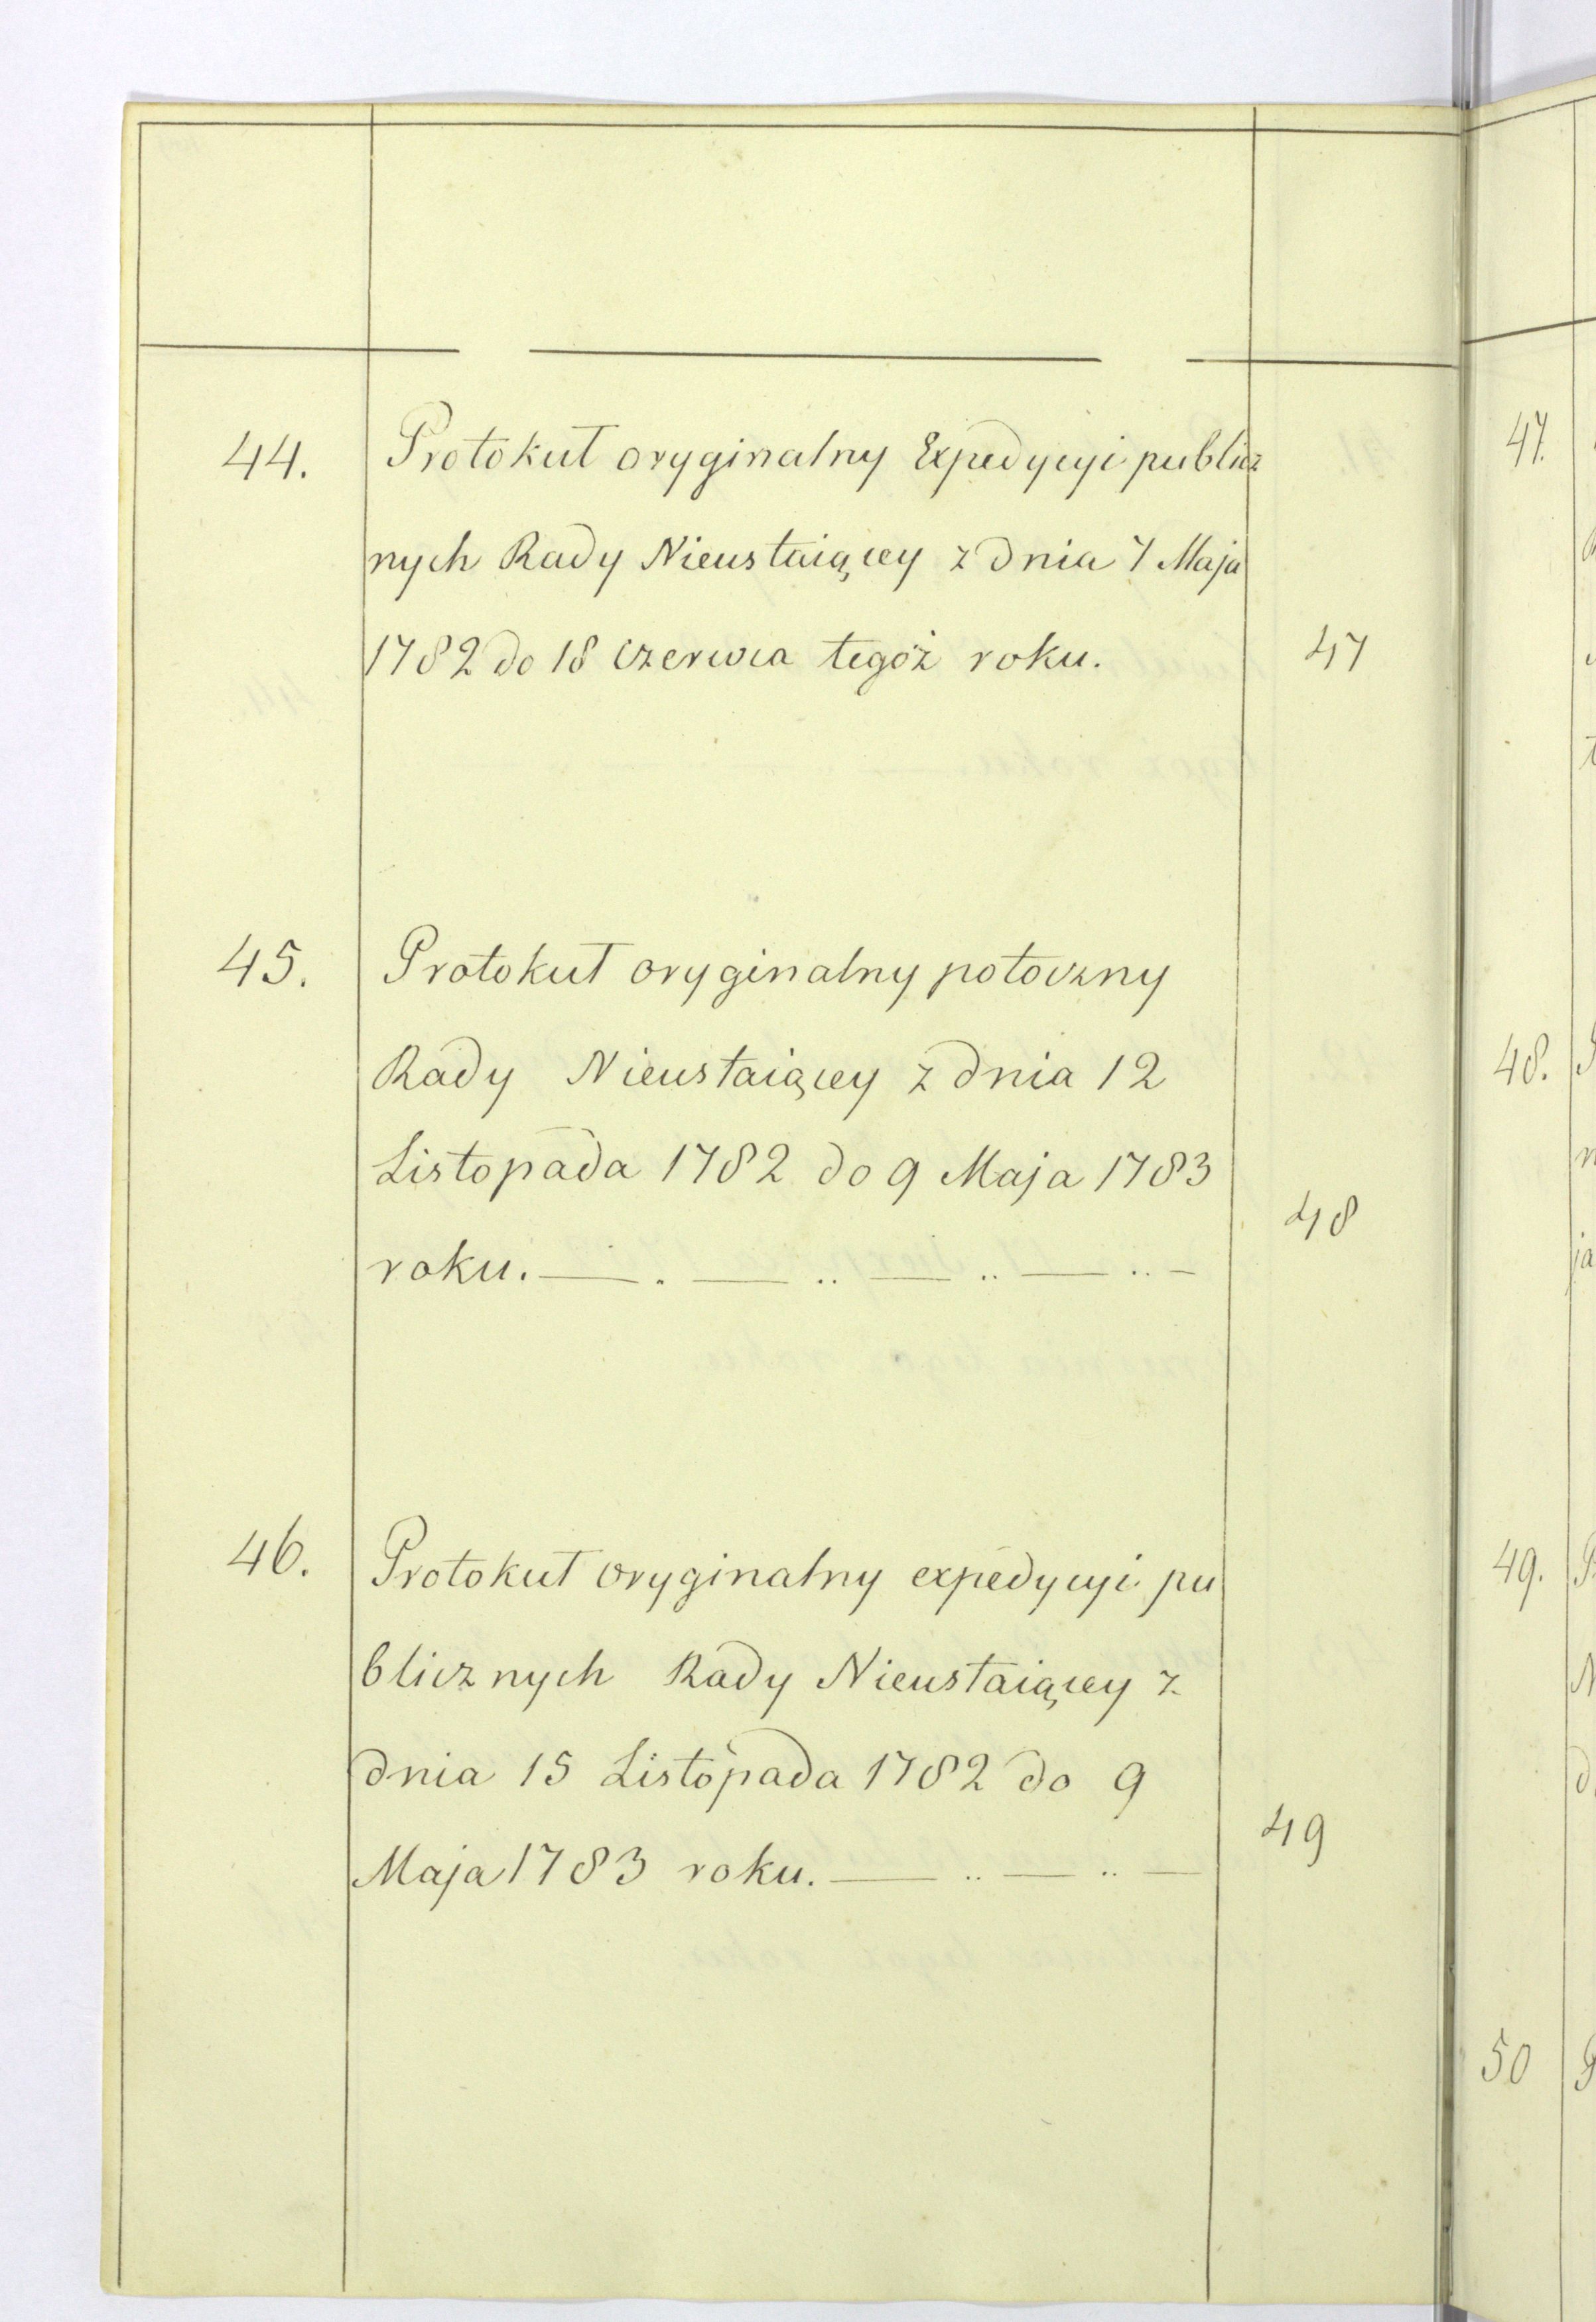 44. Protokuł oryginalny Expedycyi publicz
nych Rady Nieustaiącey z dnia 7 Maja
1782 do 18 Czerwca tegóż roku. 47
45. Protokuł oryginalny potoczny
Rady Nieustaiącey z dnia 12
Listopada 1782 do 9 Maja 1783
roku. — . — .. — .. — .. — 48
46. Protokuł oryginalny expedycyi pu
blicznych Rady Nieustaiącey z
dnia 15 Listopada 1782 do 9
Maja 1783 roku. — .. — .. — 49
47.
48.
49.
50